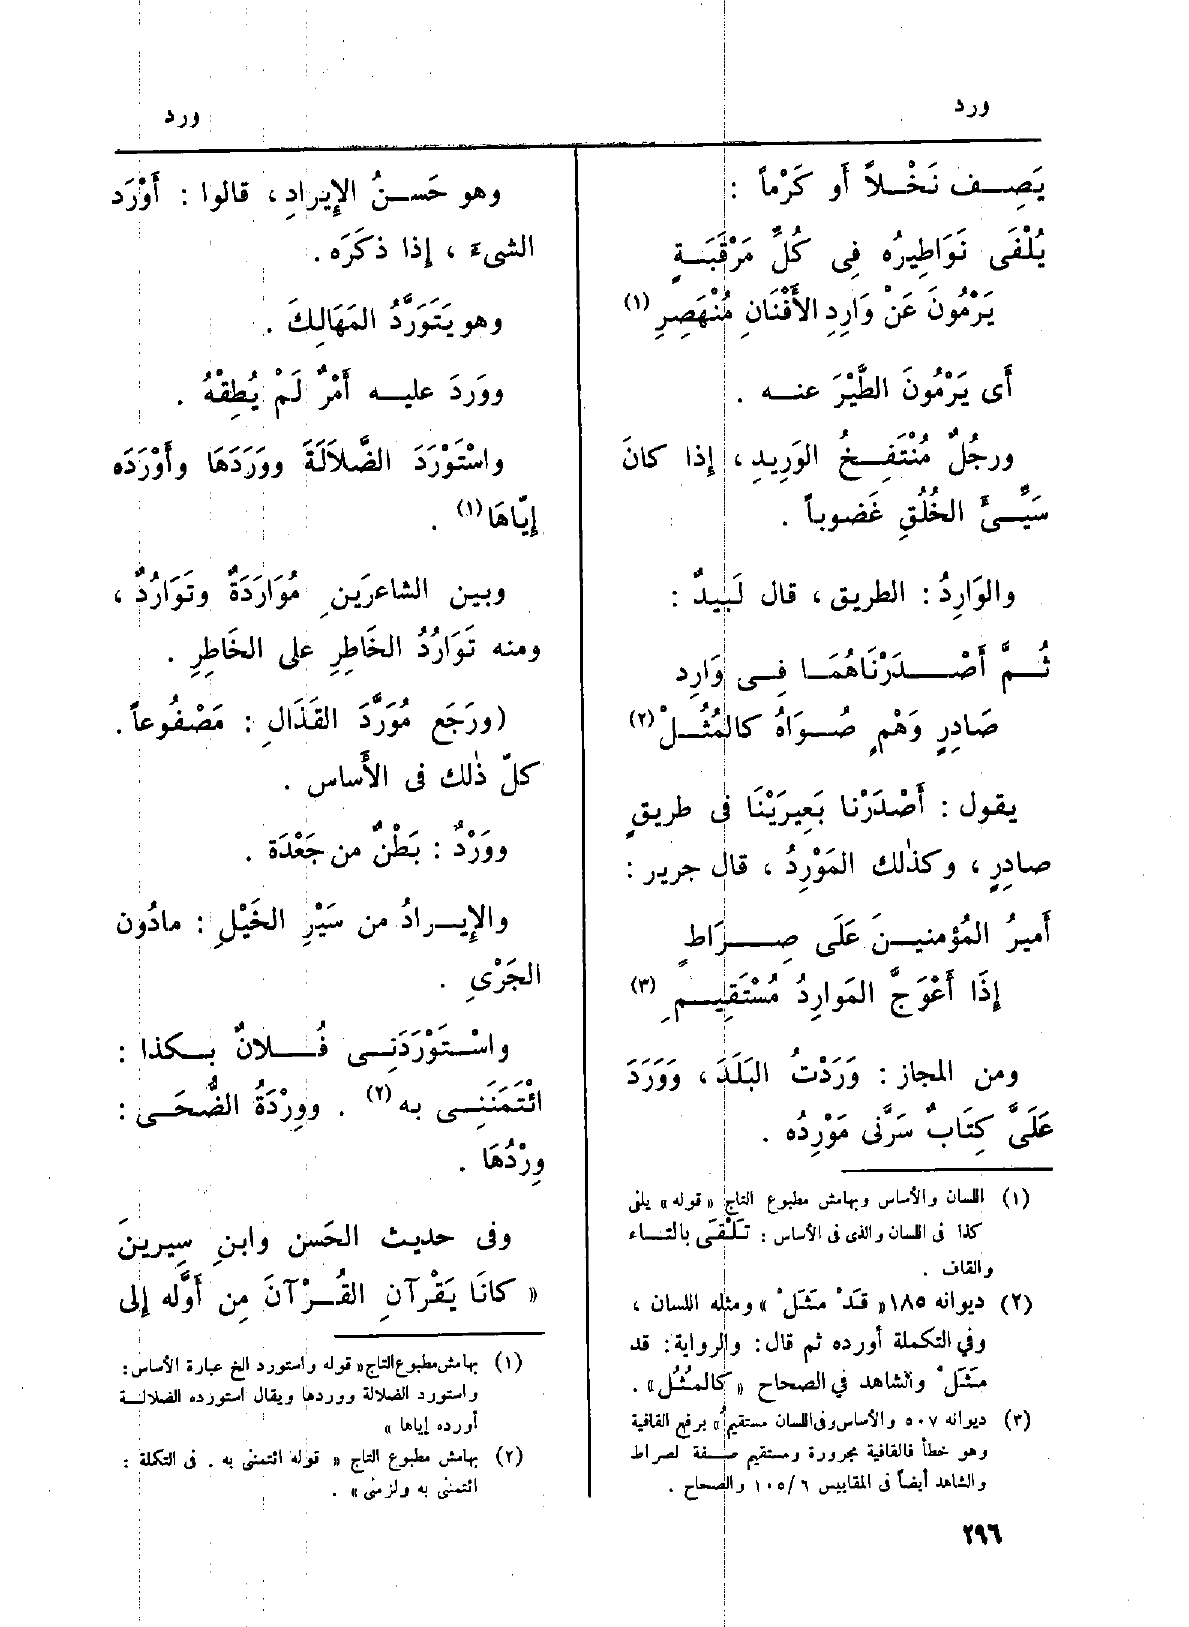 ورد
ورد
يَصِف نَخْلاً أو كَرْماً :
يُلْفَى نَوَاطِيرُه فِى كُلِّ مَرْقَبَةٍ
يَرْمُونَ عَنْ وَارِدِ الأَفْنَانِ مُنْهَصِرِ (١)
أَى يَرْمُونَ الطَّيْرَ عنه .
ورجُلٌ مُنْتَفِخُ الوَرِيدِ ، إِذا كانَ
سَيِّئَ الخُلُقِ غَضوباً .
والوَارِدُ : الطريق ، قال لَبِيدٌ :
ثُمَّ أَصْدَرْنَاهُمَا فِى وَارِد
صَادِرٍ وَهْمٍ صُوَاهُ كالمُثُلْ (٢)
يقول : أَصْدَرْنا بَعِيرَيْنَا فى طريقٍ
صادِرٍ ، وكذٰلك المَوْرِدُ ، قال جرير :
أَميرُ المُؤمنينَ عَلَى صِرَاطٍ
إِذَا أعْوَجَّ المَوارِدُ مُسْتَقِيمِ (٣)
ومن المجاز : وَرَدْتُ البَلَدَ ، وَوَرَدَ
عَلَىَّ كِتَابٌ سَرَّنى مَوْرِدُه .
(١) اللسان والأساس وبهامش مطبوع التاج « قوله » يلفى
كذا فى اللسان والذى فى الأساس : تَلْقَى بالتاء
والقاف .
(٢) ديوانه ١٨٥ « قَدْ مَثَلْ » ومثله اللسان ،
وفي التكملة أورده ثم قال : والرواية : قد
مَثَلْ والشاهد في الصحاح « كالمُثُل » .
(٣) ديوانه ٥٠٧ والأساس وفى اللسان مستقيمُ » برفع القافية
وهو خطأ فالقافية مجرورة ومستقيم صفة لصراط
والشاهد أيضاً فى المقاييس ٦ /١٠٥ والصحاح .
وهو حَسنُ الإِيرادِ ، قالوا : أَوْرَد
الشىءَ ، إِذا ذكَرَه .
وهو يَتَوَرَّدُ المَهَالِكَ .
ووَرَدَ عليه أَمْرٌ لَمْ يُطِقْهُ .
واسْتَوْرَدَ الضَّلاَلَةَ ووَرَدَهَا وأَوْرَدَه
إِيّاهَا (١) .
وبين الشاعرَينِ مُوَارَدَةٌ وتَوَارُدٌ ،
ومنه تَوَارُدُ الخَاطِرِ على الخَاطِرِ .
(ورَجَع مُوَرَّدَ القَذَالِ : مَصْفُوعاً .
كلّ ذٰلك فى الأَساس .
ووَرْدٌ : بَطْنٌ من جَعْدَة .
والإِيرادُ من سَيْرِ الخَيْلِ : مادُون
الجَرْىِ .
واسْتَوْرَدَنِى فُلانٌ بكذا :
ائْتَمَنَنِى به (٢) . ووِرْدَةُ الضُّحَى :
وِرْدُهَا .
وفى حديث الحَسن وابنِ سِيرينَ
« كانَا يَقْرآنِ القُرْآنَ مِن أَوَّله إلى
(١) بهامش مطبوع التاج « قوله واستورد الخ عبارة الأساس :
واستورد الضلالة ووردها ويقال استورده الضلالة
أورده إياها »
(٢) بهامش مطبوع التاج « قوله ائتمنى به . فى التكلة :
ائتمنى به ولزمنى » .
٢٩٦